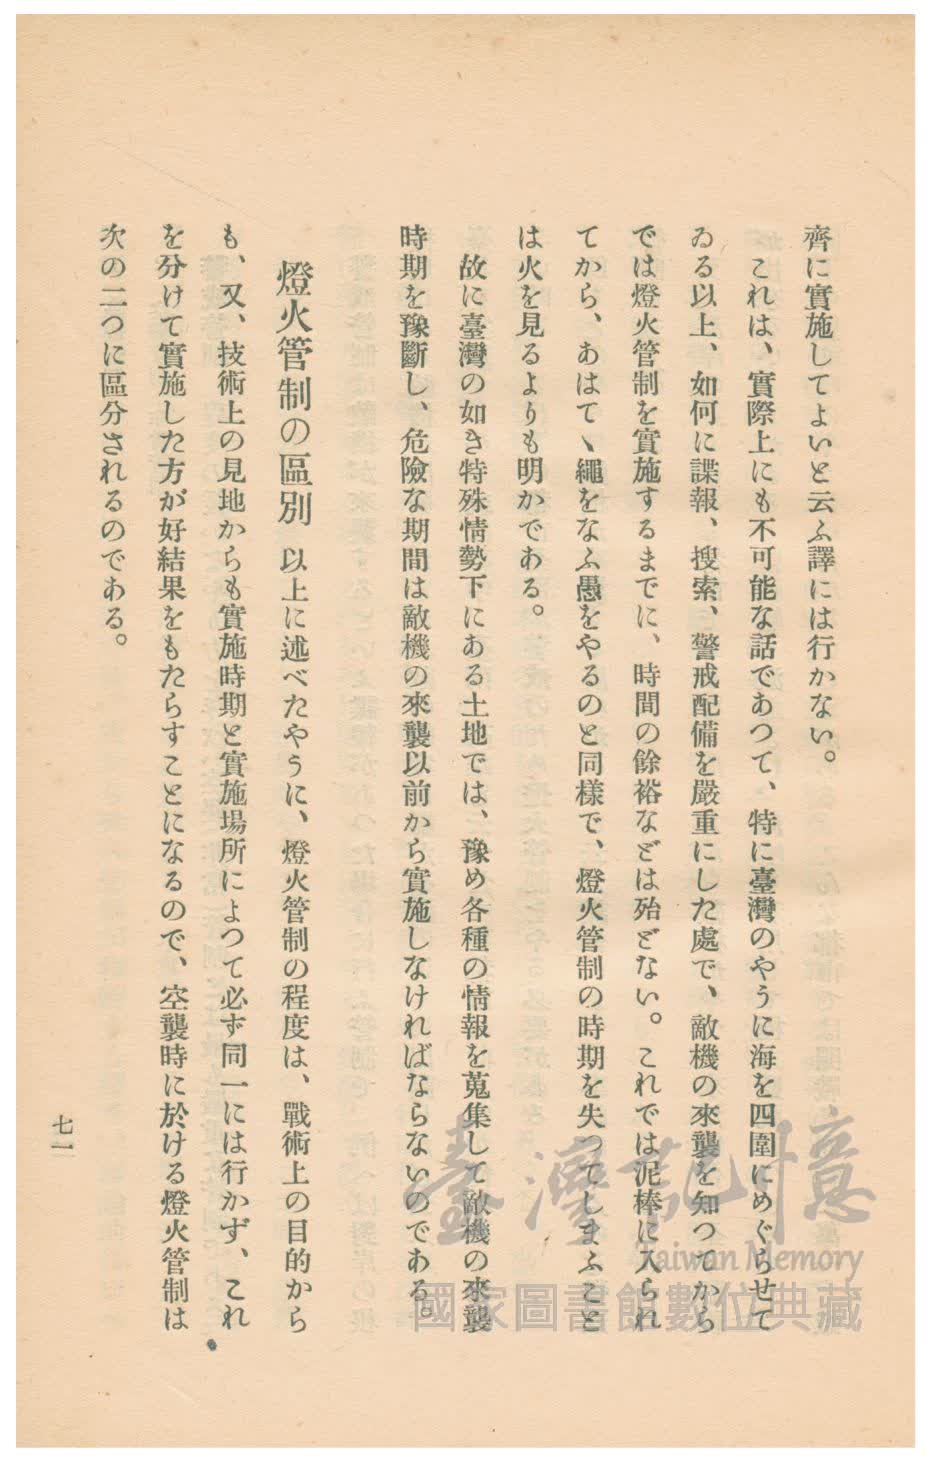 齊に實施してよいと云ふ譯には行かない。
これは、實際上にも不可能な話であつて、特に臺灣のやうに海を四圍にめぐらせて
ゐる以上、如何に諜報、搜索、警戒配備を嚴重にした處で、敵機の來襲を知つてから
では燈火管制を實施するまでに、時間の餘裕などは殆どない。これでは泥棒に入られ
てから、あはてヽ繩をなふ愚をやるのと同樣で、燈火管制の時期を失つてしまふこと
は火を見るよりも明かである。
故に臺灣の如き特殊情勢下にある土地では、豫め各種の情報を蒐集して敵機の來襲
時期を豫斷し、危險な期間は敵機の來襲以前から實施しなければならないのである。
燈火管制の區別 以上に述べたやうに、燈火管制の程度は、戰術上の目的から
も、又、技術上の見地からも實施時期と實施場所によつて必ず同一には行かず、これ
を分けて實施した方が好結果をもたらすことになるので、空襲時に於ける燈火管制は
次の二つに區分されるのである。
七一
臺灣記憶
Taiwan Memory
國家圖書館數位典藏